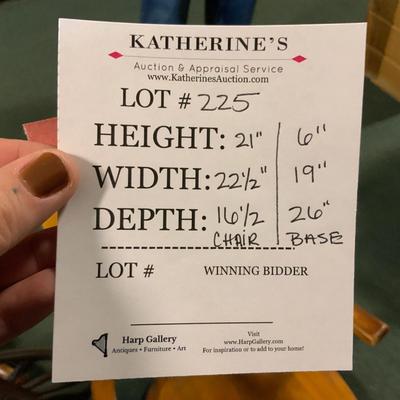 KATHERINE'S
Auction & Appraisal Service
www.KatherinesAuction.com
LOT # 225
HEIGHT: 21" 6"
WIDTH: 22½" 19"
DEPTH: 16½ 26"
CHAIR BASE
LOT # WINNING BIDDER
Harp Gallery
Antiques • Furniture • Art
Visit
www.HarpGallery.com
For inspiration or to add to your home!